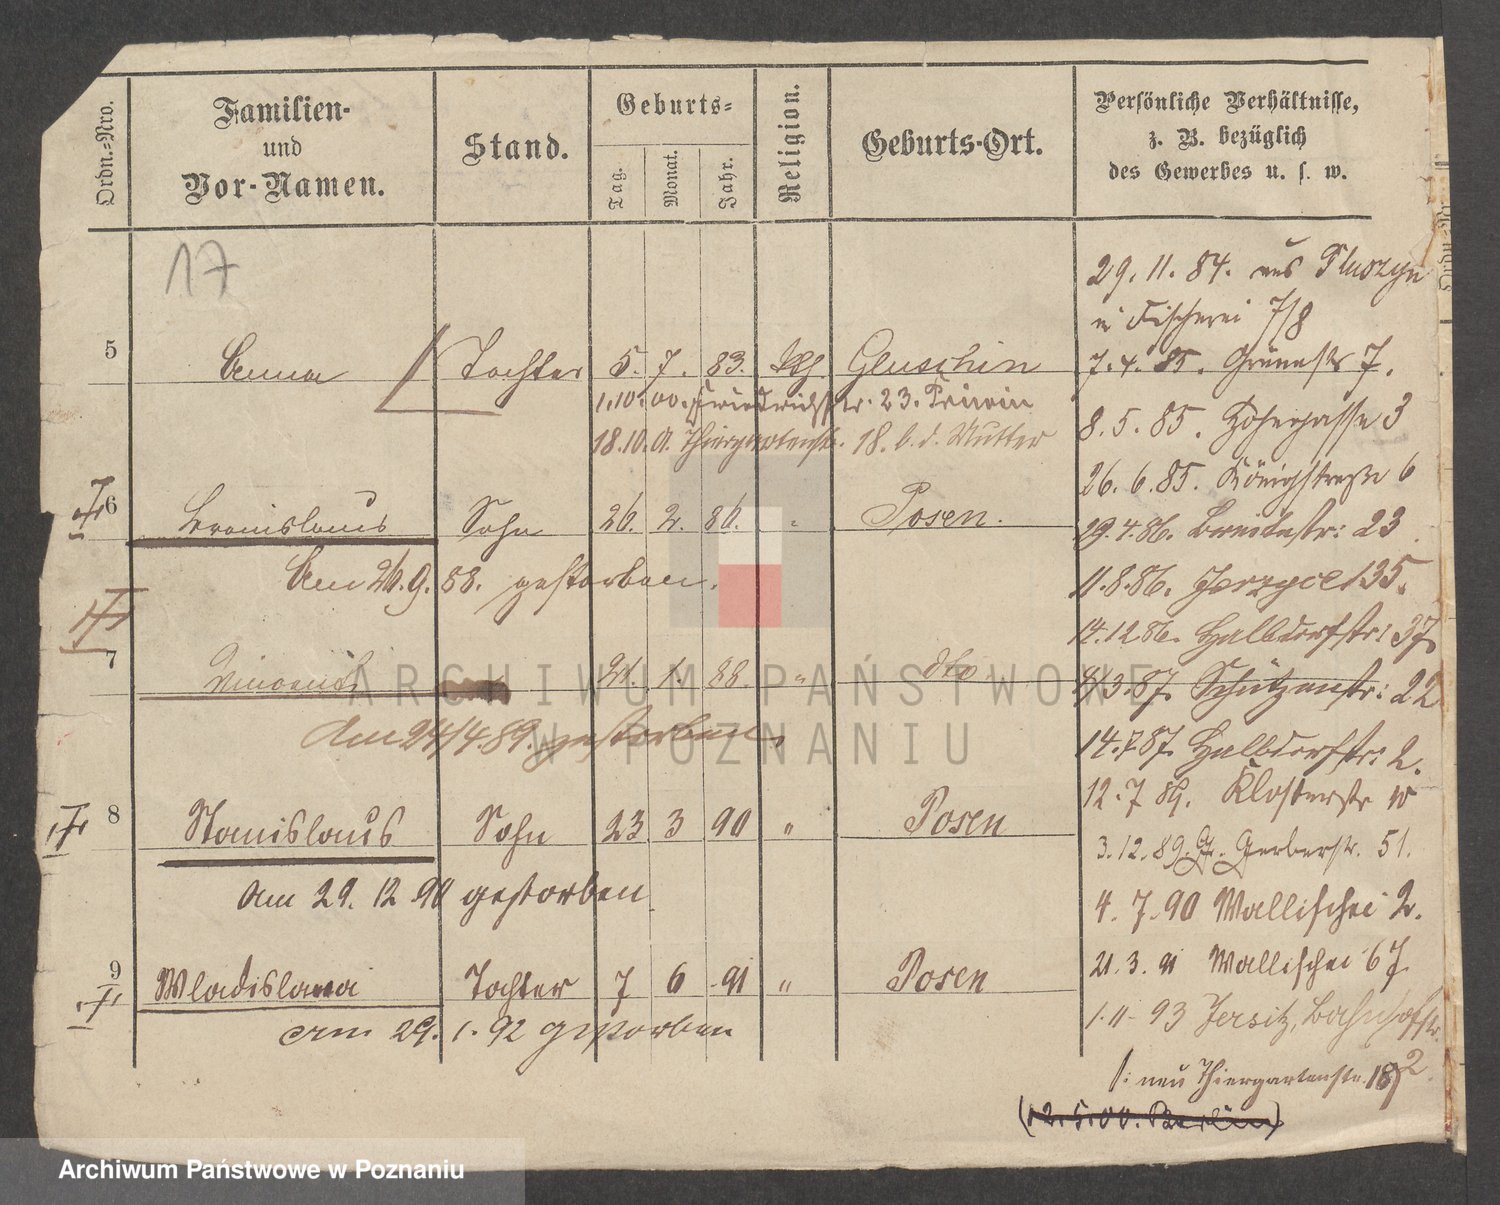 Ordn.-Nro.
Familien-
und
Vor-Namen.
Stand.
Geburts-
Tag.
Monat.
Jahr.
Religion.
Geburts-Ort.
Persönliche Verhältnisse,
z. B. bezüglich
des Gewerbes u. s. w.
17
5 Anna Tochter 5. 7. 83. kth. Gluschin
1.10.00. Friedrichstr. 23. Priwin
18.10.01. Thiergartenstr. 18. b. d. Mutter
6 Bronislaus Sohn 26. 2. 86. " Posen.
Am 26.9.88. gestorben.
7 Vincent 21. 1. 88. " dto
Am 24/4.89. gestorben.
8 Stanislaus Sohn 23 3 90 " Posen
Am 29. 12 90 gestorben
9 Wladislawa Tochter 7 6 91 " Posen
am 29. 1. 92 gestorben
29. 11. 84. aus
Fischerei 7/8
7. 4. 85. Grünestr 7.
8. 5. 85. Hohegasse 3
26. 6. 85. Königstraße 6
29. 4. 86. Breitestr: 23
11.8.86. Jerzyce 135.
14.12.86. Halbdorfstr: 37
3.87. Schützenstr: 22
14.7.87. Halbdorfstr: 2.
12. 7 89. Klosterstr
3.12.89. Gr. Gerberstr. 51.
4. 7. 90 Wallischei 2.
21. 3. 91 Wallischei 67
1. 11. 93 Jersitz, Bahnhofstr. 2.
neu Thiergartenstr. 18
(12.5.00. Berlin)
ARCHIWUM PAŃSTWOWE
W POZNANIU
Archiwum Państwowe w Poznaniu